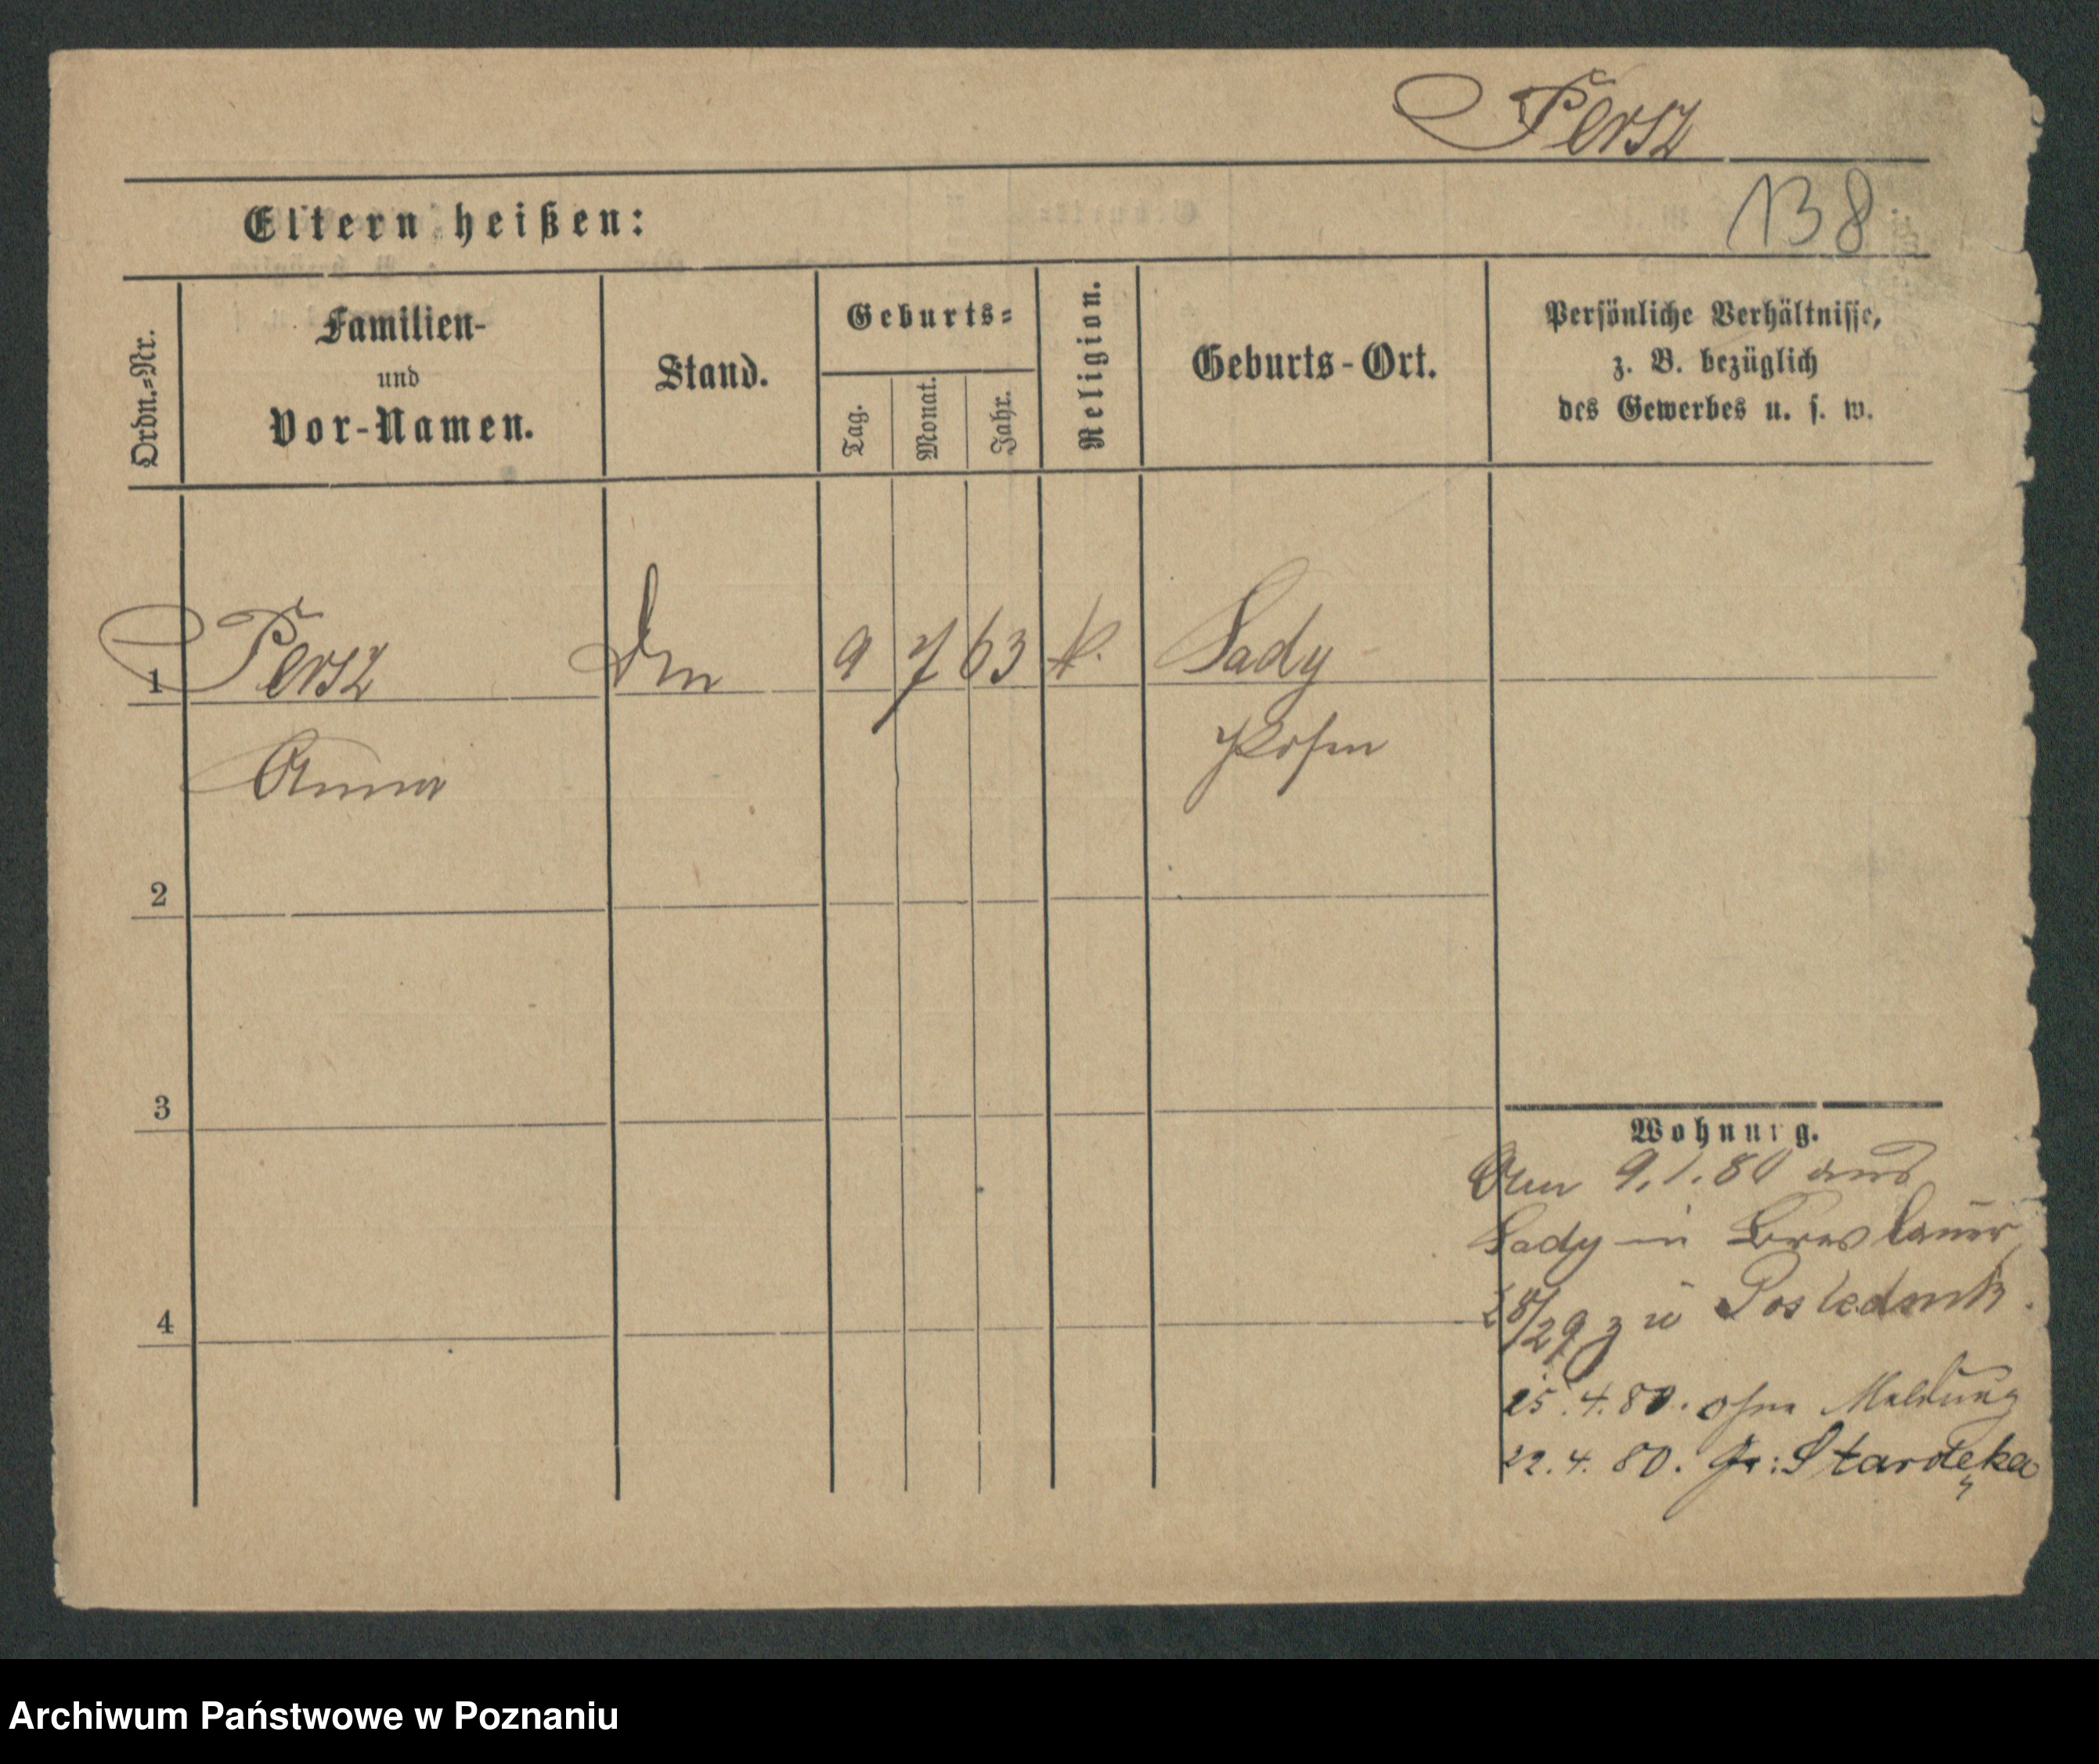 Persz
138
Eltern heißen:
Ordn.=Nr.
Familien-
und
Vor-Namen.
Stand.
Geburts=
Tag.
Monat.
Jahr.
Religion.
Geburts-Ort.
Persönliche Verhältnisse,
z. B. bezüglich
des Gewerbes u. s. w.
1 Persz 9 7 63 k. Sady
Anna Posen
2
3
4
Wohnung.
Am 9.1.80 aus
Sady in Breslauer
28/29 zu Poslednik.
25.4.80. ohne Meldung
22.4.80. Starolęka
Archiwum Państwowe w Poznaniu